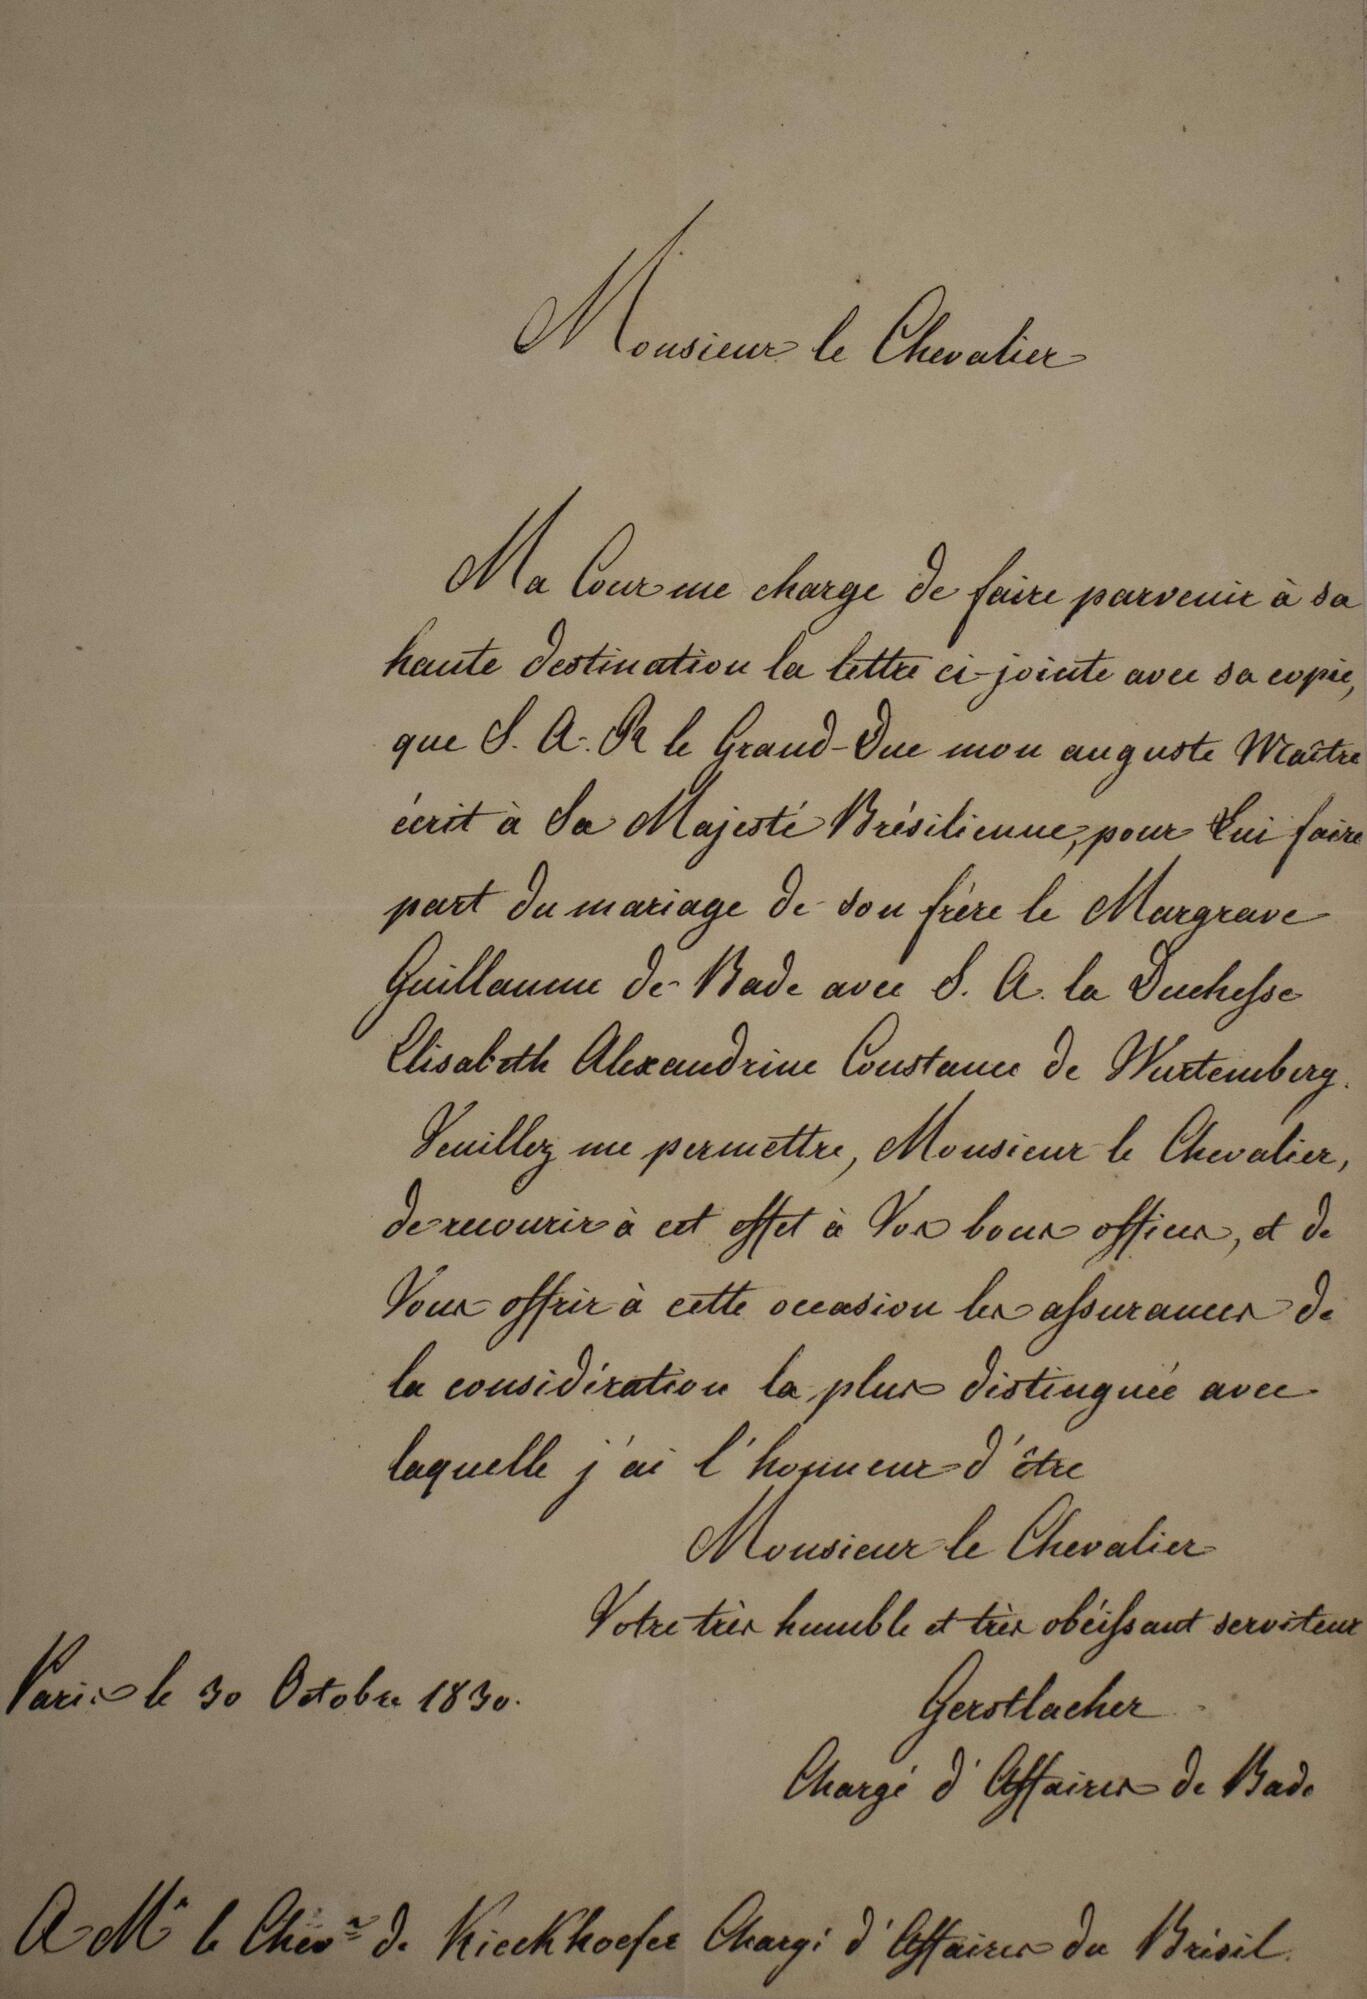 Monsieur le Chevalier
Ma Cour me charge de faire parvenir à sa
haute destination la lettre ci-jointe avec sa copie,
que S. A. R le Grand-Duc mon auguste Maître
écrit à Sa Majesté Brésilienne, pour Lui faire
part du mariage de son frère le Margrave
Guillaume de Bade avec S. A. la Duchesse
Elisabeth Alexandrine Constance de Wurtemberg.
Veuillez me permettre, Monsieur le Chevalier,
de recourir à cet effet à Vos bons offices, et de
Vous offrir à cette occasion les assurances de
la considération la plus distinguée avec
laquelle j'ai l'honneur d'être
Monsieur le Chevalier
Votre très humble et très obéissant serviteur
Paris le 30 Octobre 1830.
Gerstlacher
Chargé d'Affaires de Bade
A Mr le Chevr de Kieckhoefer Chargé d'Affaires du Brésil.